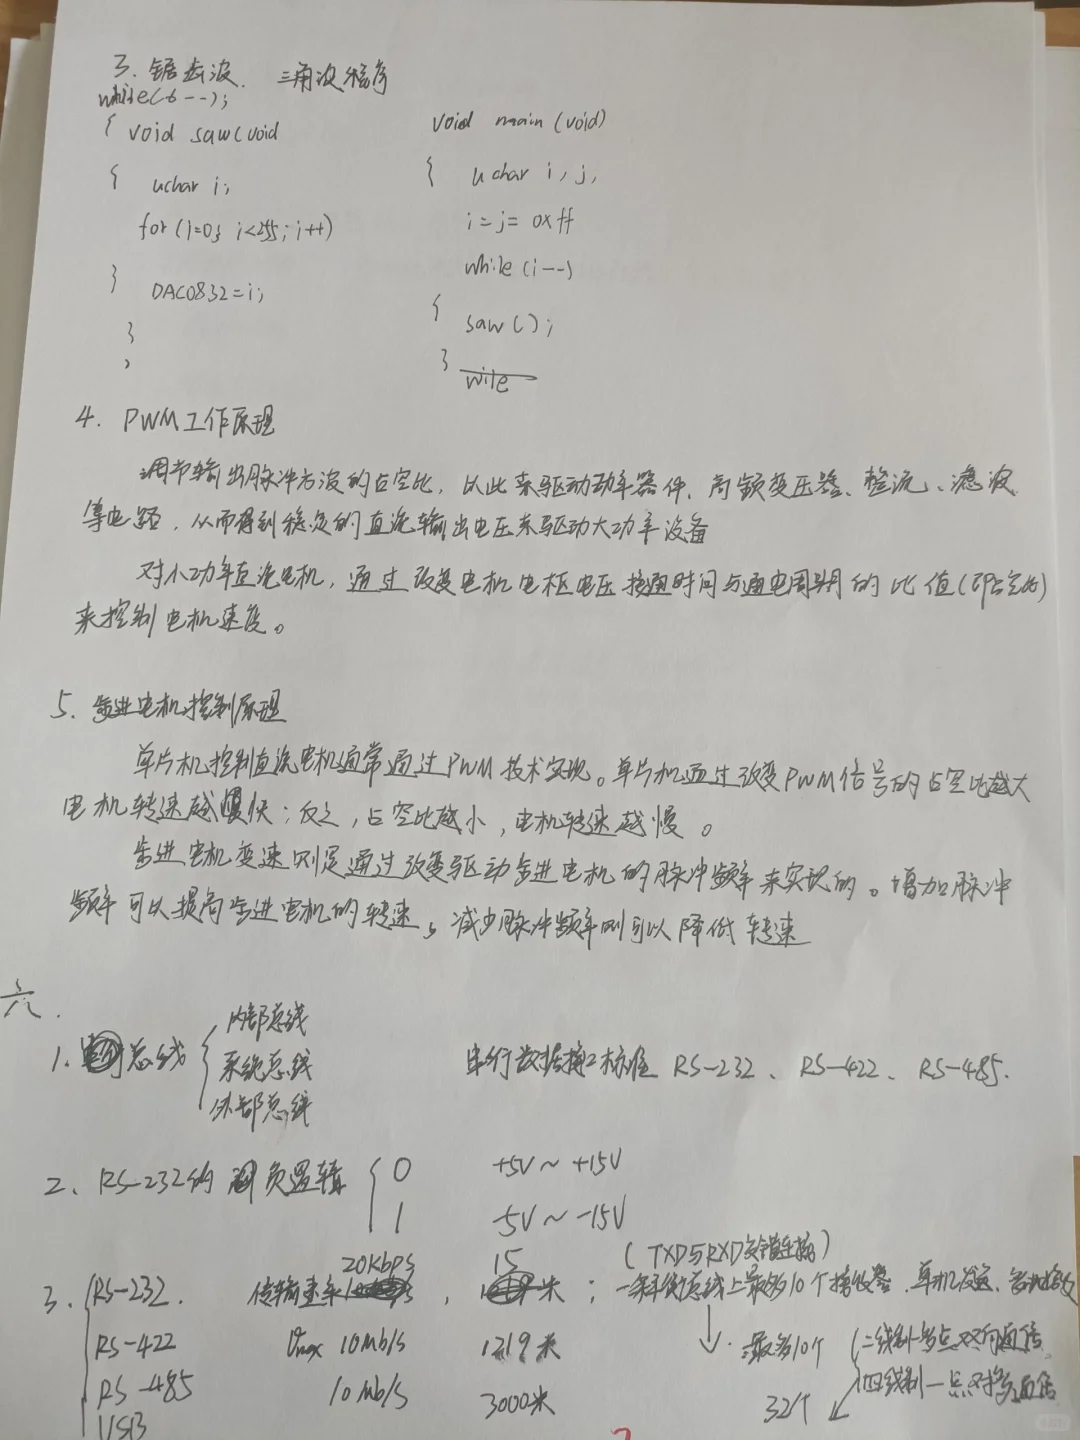 3. 锯齿波. 三角波程序
while(6--);
{ void saw(void
{ uchar i;
for (i=0; i<255; i++)
} DAC0832=i;
}
void main (void)
{ uchar i, j,
i=j= 0xff
while (i--)
{
saw();
}
wile
4. PWM工作原理
调节输出脉冲方波的占空比, 以此来驱动功率器件、高频变压器、整流、滤波
等电路, 从而得到稳定的直流输出电压来驱动大功率设备
对小功率直流电机, 通过改变电机电枢电压接通时间与通电周期的比值(即占空比)
来控制电机速度。
5. 步进电机控制原理
单片机控制直流电机通常通过PWM技术实现。单片机通过改变PWM信号的占空比越大
电机转速越快; 反之, 占空比越小, 电机转速越慢。
步进电机变速则是通过改变驱动步进电机的脉冲频率来实现的。增加脉冲
频率可以提高步进电机的转速, 减少脉冲频率则可以降低转速
六.
1. 总线 { 内部总线
系统总线
外部总线
串行数据接口标准 RS-232、RS-422、RS-485.
2、RS-232的 负逻辑 { 0 +5V ~ +15V
1 -5V ~ -15V
20Kbps 15 (TXD与RXD交错连接)
3. { RS-232. 传输速率 , 米; 总线上最多10个接收器. 单机发送、
RS-422 Vmax 10Mb/s 1219米 最多10个 (二线制-多点双向通信
RS-485 10Mb/s 3000米 32个 四线制-点对多通信
USB